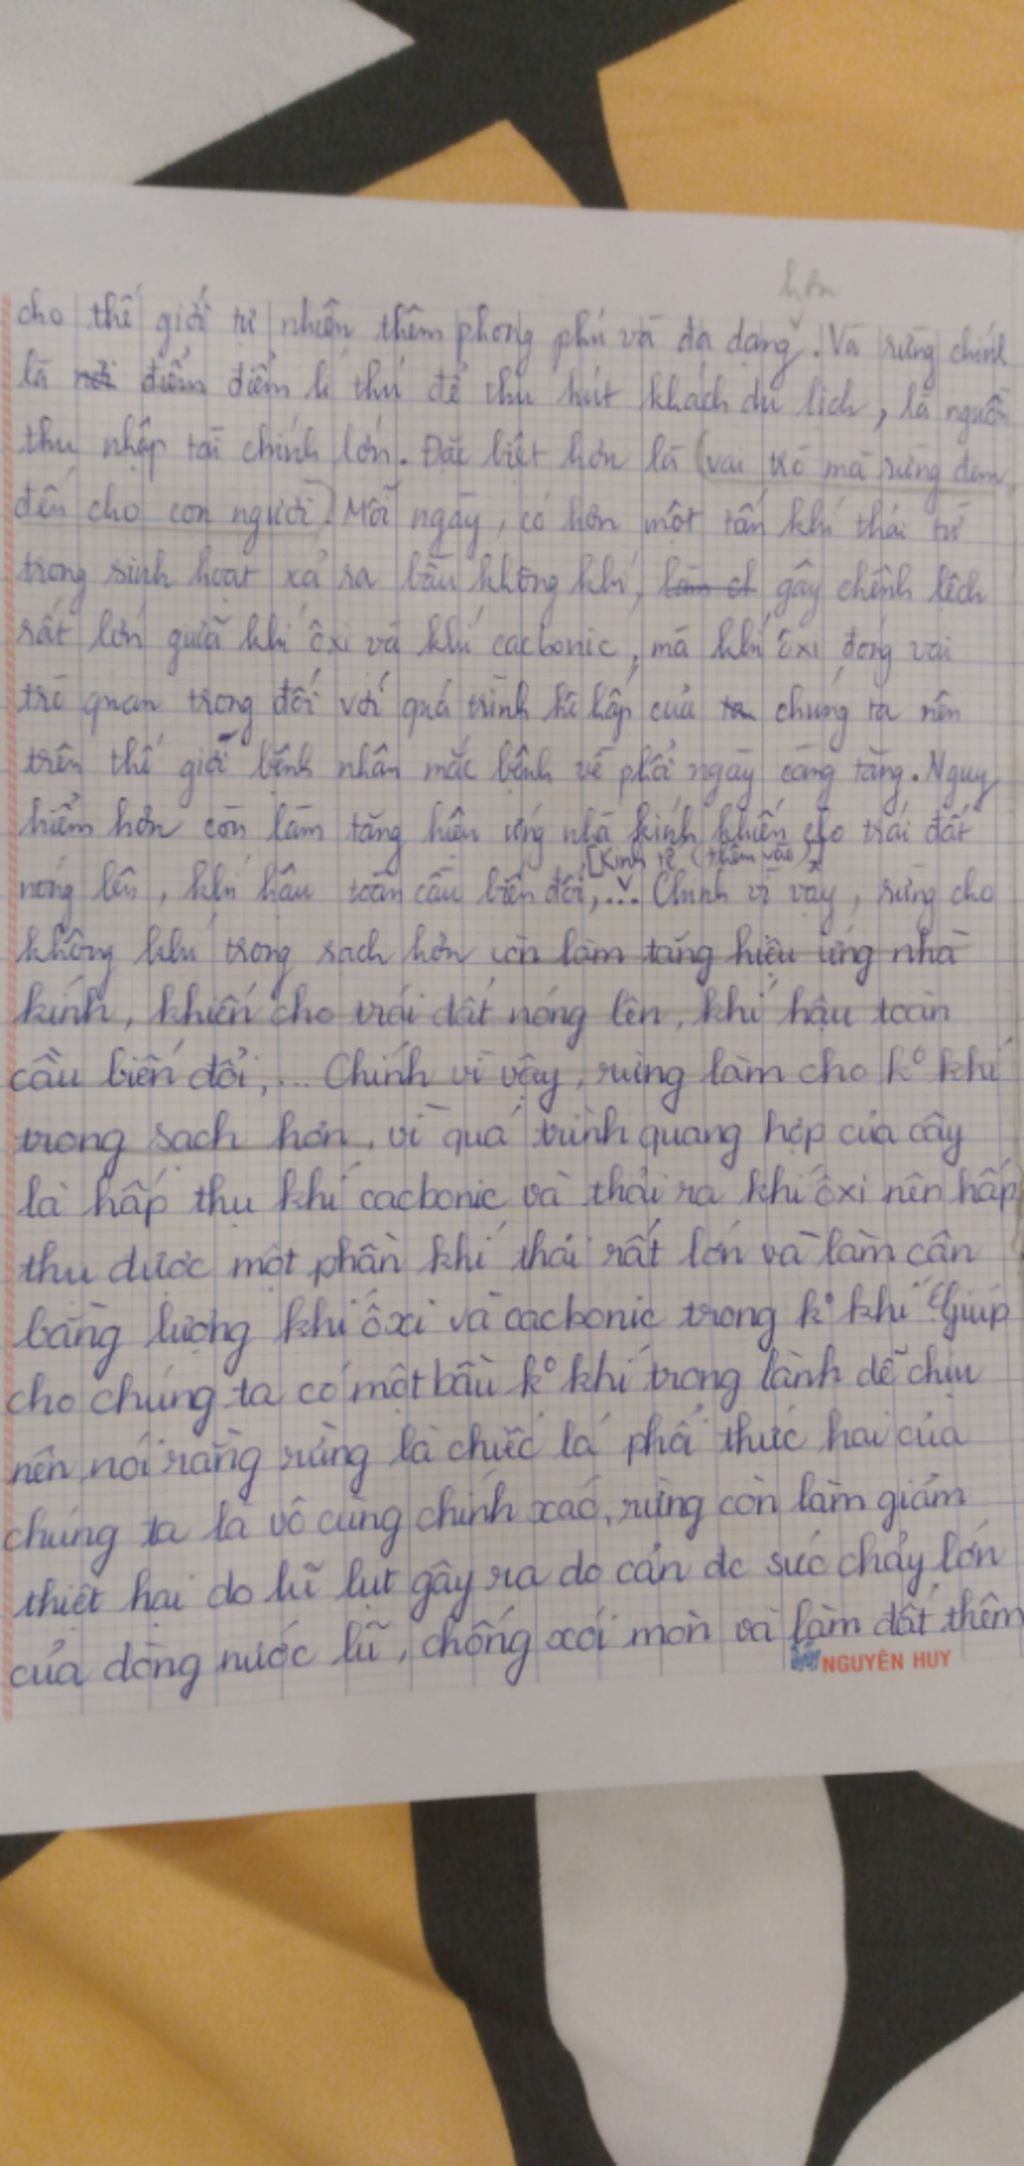 hơn
cho thế giới tự nhiên thêm phong phú và đa dạng. Và rừng chính
là nơi điểm điểm lí thú để thu hút khách du lịch, là nguồn
thu nhập tài chính lớn. Đặc biệt hơn là (vai trò mà rừng đem
đến cho con người). Mỗi ngày, có hơn một tấn khí thải từ
trong sinh hoạt xả ra bầu không khí, làm ch gây chênh lệch
rất lớn giữa khí ôxi và khí cacbonic, mà khí ôxi đóng vai
trò quan trọng đối với quá trình hô hấp của ta chúng ta nên
trên thế giới bệnh nhân mắc bệnh về phổi ngày càng tăng. Nguy
hiểm hơn còn làm tăng hiệu ứng nhà kính khiến cho trái đất
[Kinh tế (thêm vào)]
nóng lên, khí hậu toàn cầu biến đổi,... Chính vì vậy, rừng cho
không khí trong sạch hơn còn làm tăng hiệu ứng nhà
kính, khiến cho trái đất nóng lên, khí hậu toàn
cầu biến đổi,... Chính vì vậy, rừng làm cho k° khí
trong sạch hơn, vì quá trình quang hợp của cây
là hấp thụ khí cacbonic và thải ra khí ôxi nên hấp
thụ được một phần khí thải rất lớn và làm cân
bằng lượng khí ôxi và cacbonic trong k° khí. Giúp
cho chúng ta có một bầu k° khí trong lành dễ chịu
nên nói rằng rừng là chiếc lá phổi thức hai của
chúng ta là vô cùng chính xác, rừng còn làm giảm
thiệt hại do lũ lụt gây ra do cản đc sức chảy lớn
của dòng nước lũ, chống xói mòn và làm đất thêm
NGUYÊN HUY